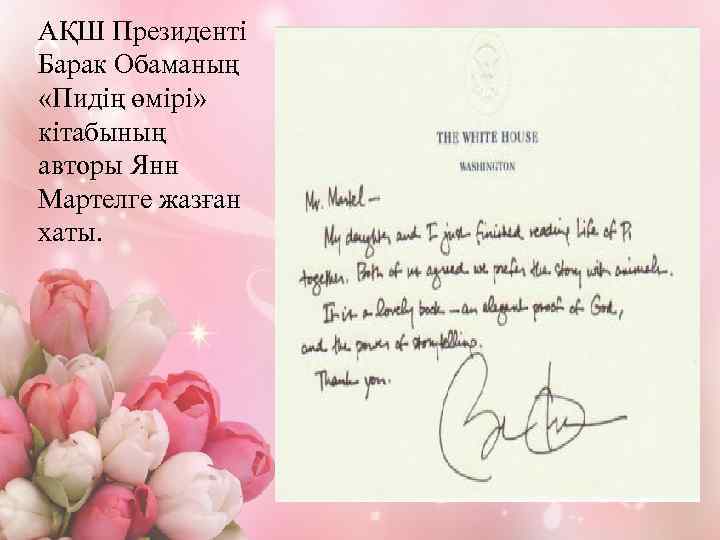 АҚШ Президенті
Барак Обаманың
«Пидің өмірі»
кітабының
авторы Янн
Мартелге жазған
хаты.
THE WHITE HOUSE
WASHINGTON
Mr. Martel –
My daughter and I just finished reading Life of Pi
together. Both of us agreed we prefer the story with animals.
It is a lovely book – an elegant proof of God,
and the power of storytelling.
Thank you.